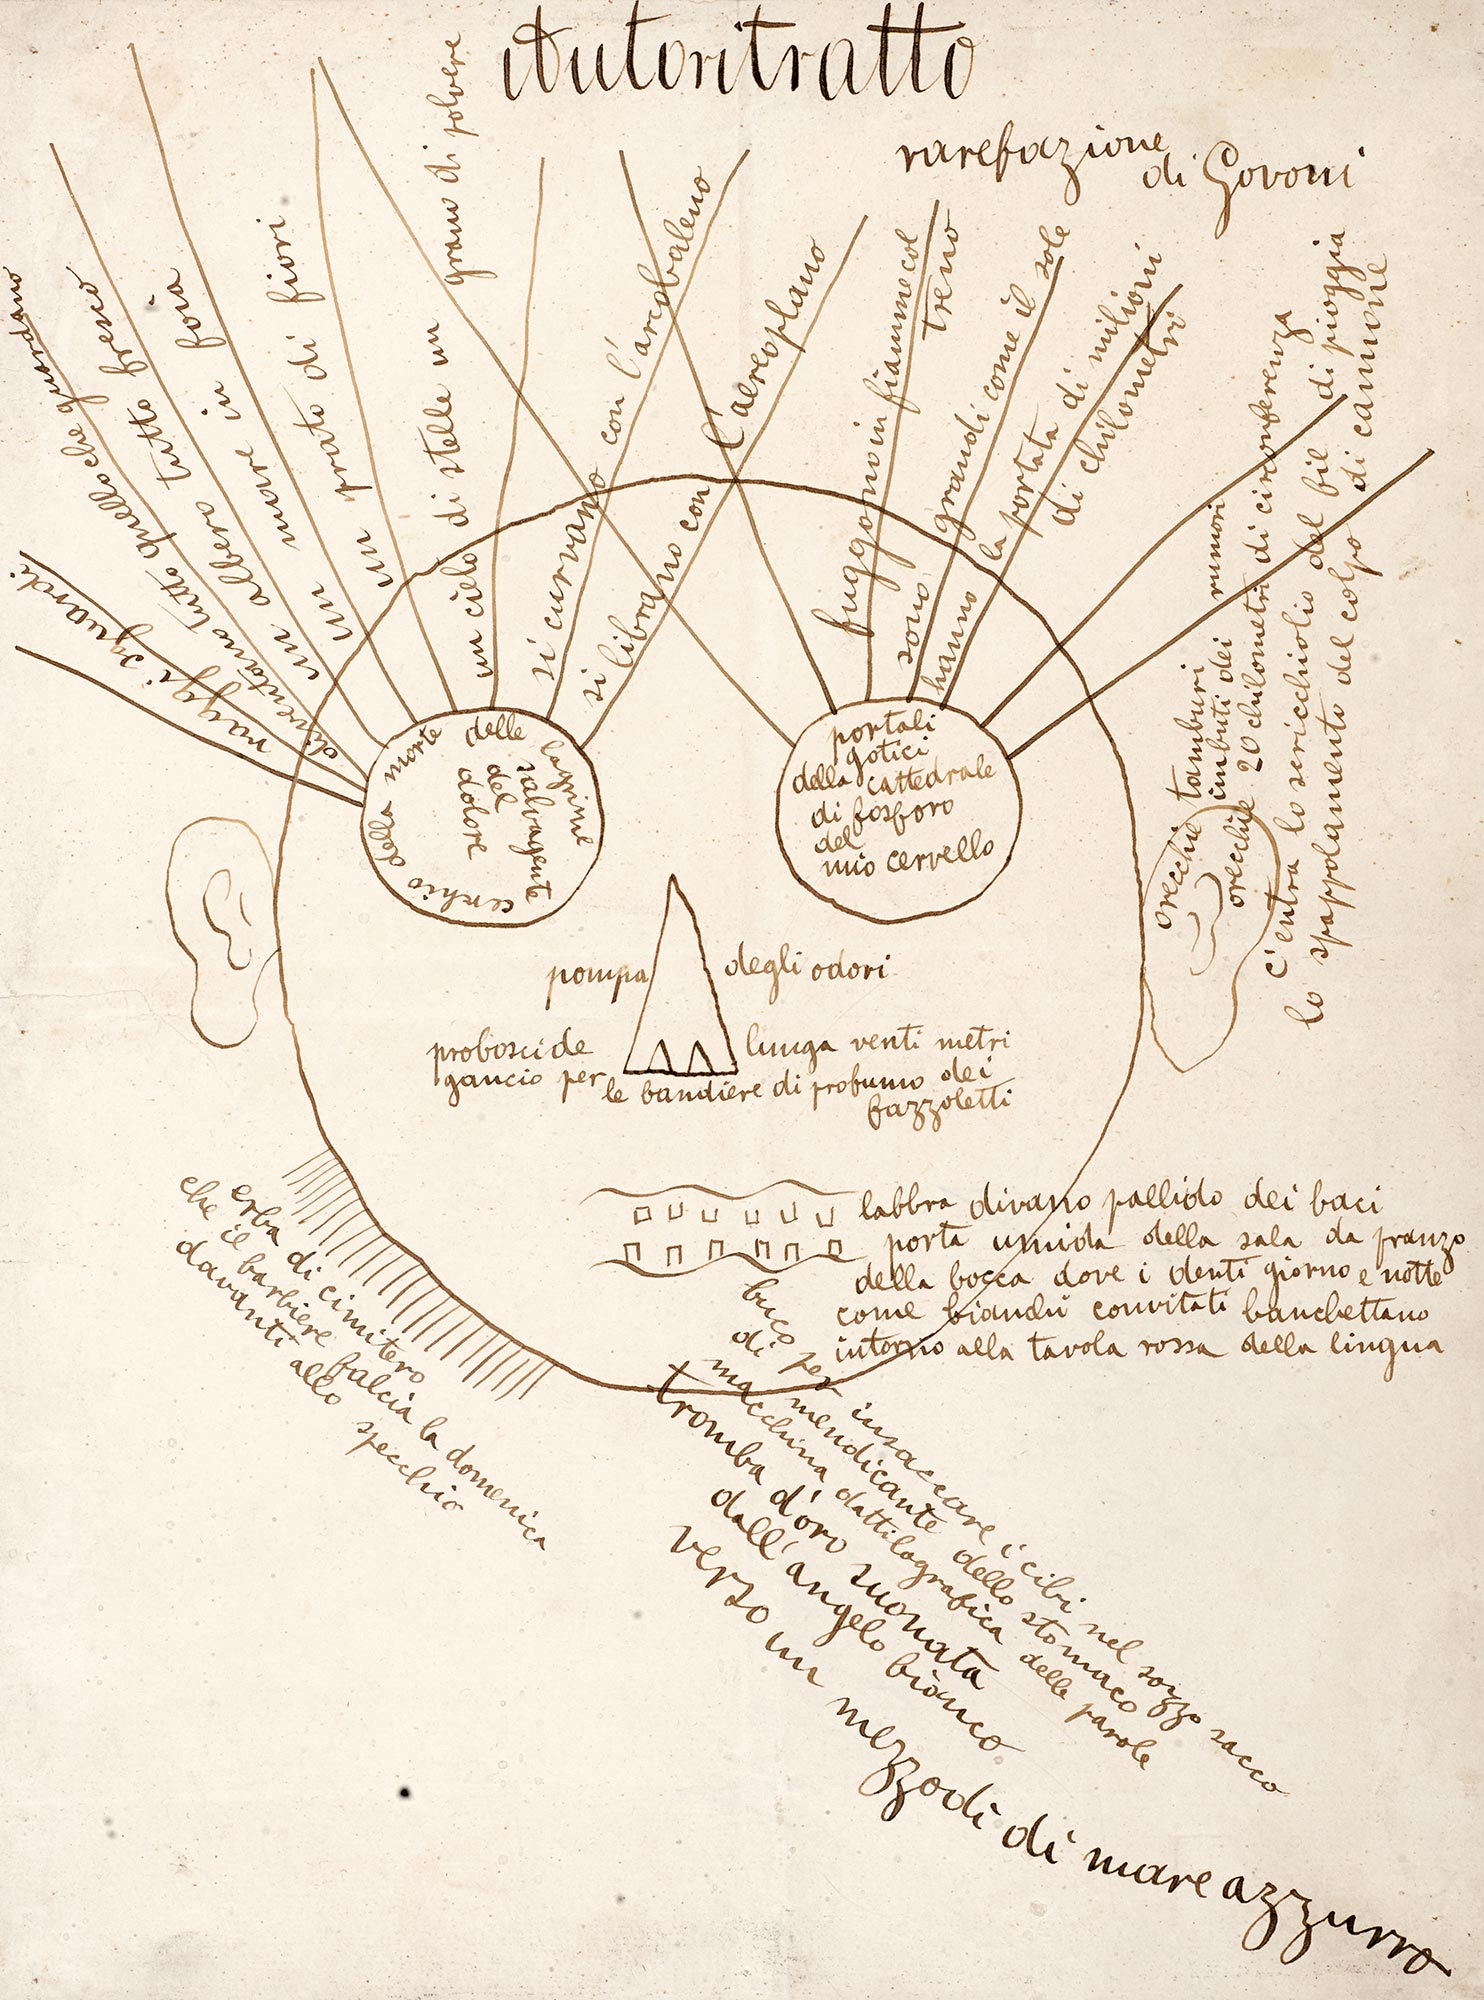 Autoritratto
rarefazione
di Govoni
raggi sguardi
diventano tutto quello che guardano
un albero tutto fresco
un cuore in foia
un prato di fiori
un cielo di stelle un grano di polvere
si curvano con l'arcobaleno
si librano con l'aereoplano
fuggono in fiamme col
treno
sono grandi come il sole
hanno la portata di milioni
di chilometri
cerchio della morte delle lagrime
salvagente
del
dolore
portali
gotici
della cattedrale
di fosforo
del
mio cervello
orecchie tamburi
imbuti dei rumori
orecchie 20 chilometri di circonferenza
c'entra lo scricchiolio del bil di pioggia
lo spappolamento del colpo di cannone
pompa degli odori
proboscide lunga venti metri
gancio per le bandiere di profumo dei
fazzoletti
labbra divano pallido dei baci
porta umida della sala da pranzo
della bocca dove i denti giorno e notte
come bianchi convitati banchettano
intorno alla tavola rossa della lingua
erba di cimitero
che il barbiere falcia la domenica
davanti allo specchio
buco per insaccare i cibi nel sozzo sacco
di mendicante dello stomaco
macchina dattilografica delle parole
tromba d'oro suonata
dall'angelo bianco
verso un mezzodì di mare azzurro